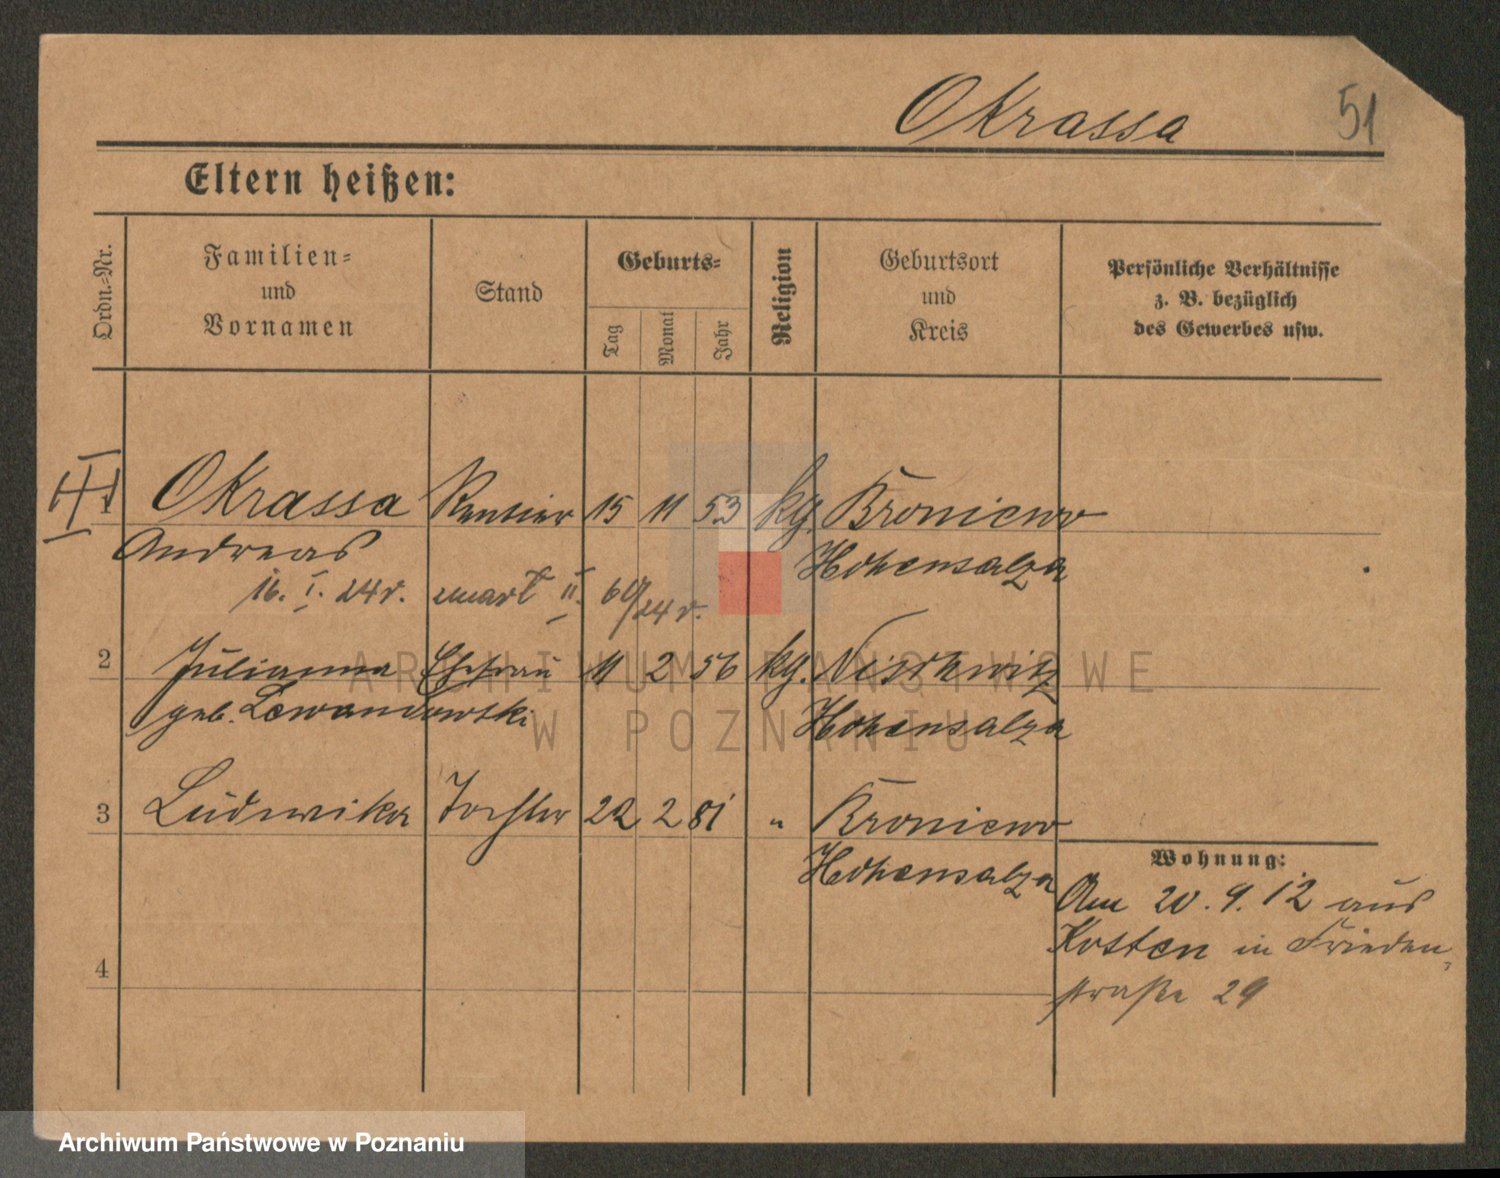 Okrassa 51
Eltern heißen:
Ordn.-Nr.
Familien-
und
Vornamen
Stand
Geburts-
Tag
Monat
Jahr
Religion
Geburtsort
und
Kreis
Persönliche Verhältnisse
z. B. bezüglich
des Gewerbes usw.
1 Okrassa Rentier 15 11 53 kg. Broniewo
Andreas Hohensalza
16. I. 24 r. zmarł II. 69/24 r.
2 Julianna Ehefrau 11 2 56 kg.
geb. Lewandowski Hohensalza
3 Ludwika Tochter 22 2 81 " Broniewo
Hohensalza
Wohnung:
Am 20. 9. 12 aus
Kosten in Frieden-
straße 29
4
ARCHIWUM PAŃSTWOWE
W POZNANIU
Archiwum Państwowe w Poznaniu